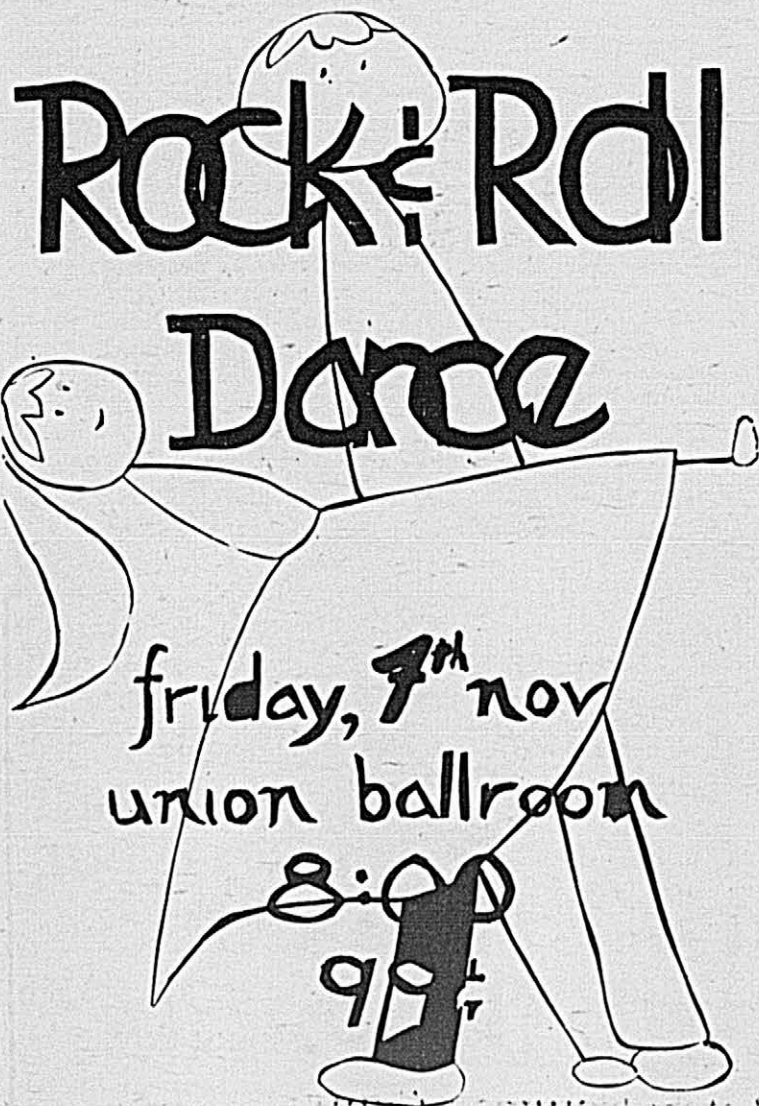 Rock & Roll
Dance
friday, 7th nov
union ballroom
8:00
99¢